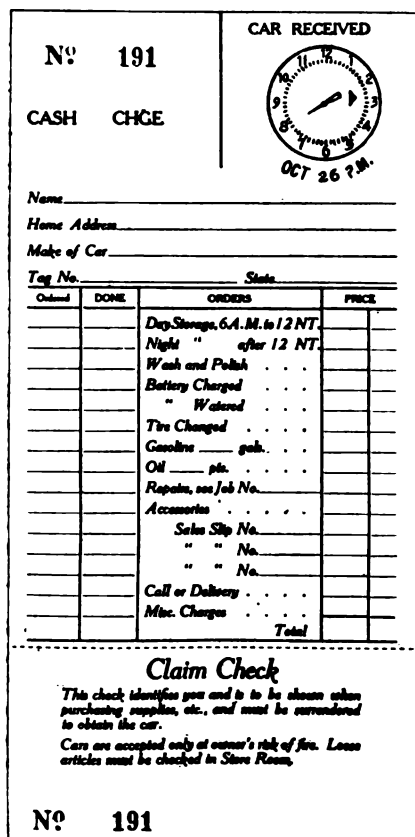 CAR RECEIVED
Nº 191
CASH CHGE.
12 1 2 3 4 5 6 7 8 9 10 11
OCT 26 P.M.
Name
Home Address
Make of Car
Tag No. State
Ordered DONE ORDERS PRICE
Day Storage, 6 A. M. to 12 NT.
Night " after 12 NT.
Wash and Polish . . .
Battery Charged . . . .
" Watered . . . .
Tire Changed . . . .
Gasoline ____ gals. . . .
Oil ____ pts. . . . .
Repairs, see Job No.
Accessories . . . . .
Sales Slip No.
" " No.
" " No.
Call or Delivery . . . .
Misc. Charges . . . .
Total
Claim Check
This check identifies you and is to be shown when
purchasing supplies, etc., and must be surrendered
to obtain the car.
Cars are accepted only at owner's risk of fire. Loose
articles must be checked in Store Room,
Nº 191